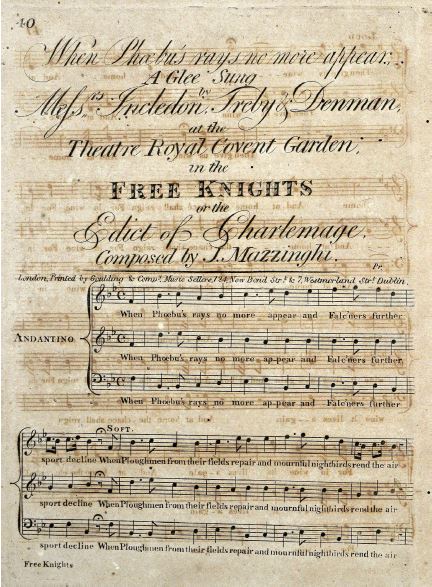 40
When Phœbu's rays no more appear,
A Glee Sung
by
Mess.rs Incledon, Treby & Denman,
at the
Theatre Royal Covent Garden,
in the
FREE KNIGHTS
or the
Edict of Charlemage,
Composed by J. Mazzinghi.
Pr.
London, Printed by Goulding & Comp.y Music Sellers 124, New Bond Str.t & 7, Westmorland Str.t Dublin.
ANDANTINO
When Phoebu's rays no more appear and Falc'ners further
When Phoebu's rays no more ap-pear and Falc'ners further
When Phoebu's rays no more ap-pear and Falc'ners further
SOFT.
sport decline When Ploughmen from their fields repair and mournful nightbirds rend the air
sport decline When Ploughmen from their fields repair and mournful nightbirds rend the air
sport decline When Ploughmen from their fields repair and mournful nightbirds rend the air
Free Knights